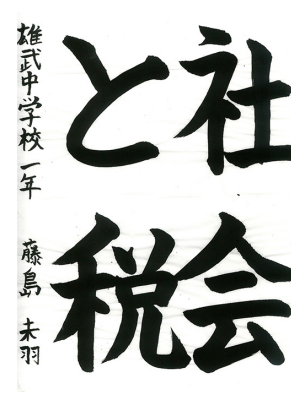 社会
と税
雄武中学校一年 藤島 未羽